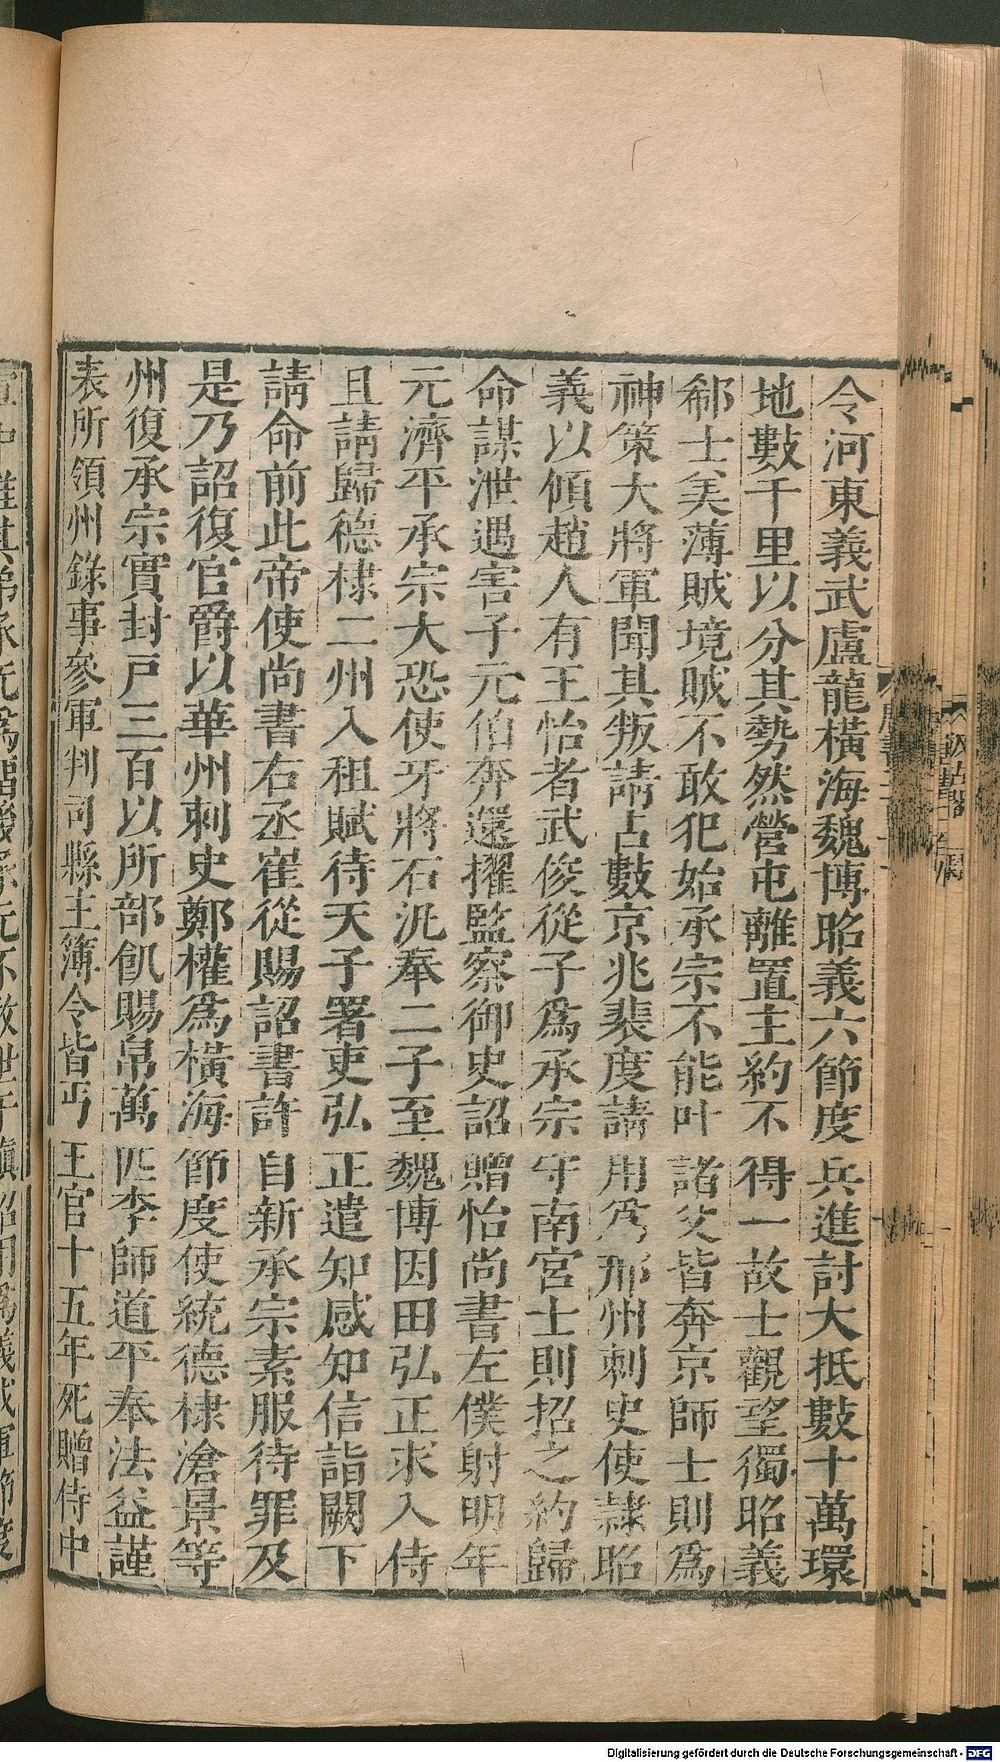 令河東義武盧龍橫海魏博昭義六節度兵進討大抵數十萬環
地數千里以分其勢然營屯離置主約不得一故士觀望獨昭義
郗士美薄賊境賊不敢犯始承宗不能叶諸父皆奔京師士則為
神策大將軍聞其叛請占數京兆裴度請用為邢州刺史使隸昭
義以傾趙人有王怡者武俊從子為承宗守南宮士則招之約歸
命謀泄遇害子元伯奔還擢監察御史詔贈怡尚書左僕射明年
元濟平承宗大恐使牙將石汎奉二子至魏博因田弘正求入侍
且請歸德棣二州入租賦待天子署吏弘正遣知感知信詣闕下
請命前此帝使尚書右丞崔從賜詔書許自新承宗素服待罪及
是乃詔復官爵以華州刺史鄭權為橫海節度使統德棣滄景等
州復承宗實封戶三百以所部飢賜帛萬匹李師道平奉法益謹
表所領州錄事參軍判司縣主簿令皆丐王官十五年死贈侍中
Digitalisierung gefördert durch die Deutsche Forschungsgemeinschaft - DFG